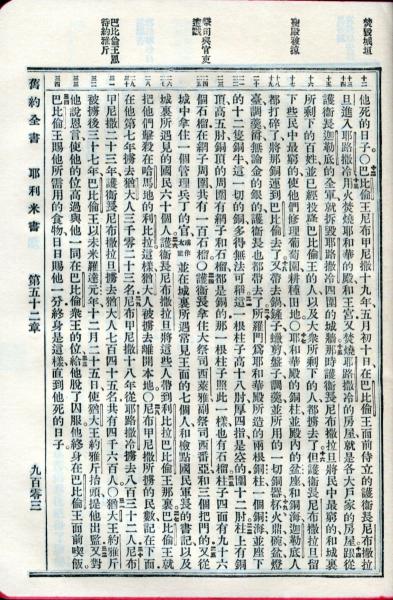 焚毀城垣
巴比倫王恩待約雅斤
他死的日子○巴比倫王尼布甲尼撒十九年五月初十日在巴比倫王面前侍立的護衛長尼布撒拉
旦進入耶路撒冷用火焚燒耶和華的殿和王宮又焚燒耶路撒冷的房屋就是各大戶家的房屋跟從
護衛長迦勒底的全軍就拆毀耶路撒冷四圍的城牆那時護衛長尼布撒拉旦將民中最窮的和城裏
所剩下的百姓並已經投降巴比倫王的人以及大衆所剩下的人都擄去了但護衛長尼布撒拉旦留
下些民中最窮的使他們修理葡萄園耕種田地○耶和華殿的銅柱並殿內的盆座和銅海迦勒底人
都打碎了將那銅運到巴比倫去了又帶去鍋鏟子蠟剪盤子調羹並所用的一切銅器杯火鼎碗盆燈
臺調羹爵無論金的銀的護衛長也都帶去了所羅門爲耶和華殿所造的兩根銅柱一個銅海並座下
的十二隻銅牛這一切的銅多得無法可稱這一根柱子高十八肘厚四指是空的圍十二肘柱上有銅
頂高五肘銅頂的周圍有網子和石榴都是銅的那一根柱子照此一樣也有石榴柱子四面有九十六
個石榴在網子周圍共有一百石榴○護衛長拿住大祭司西萊雅副祭司西番亞和三個把門的又從
城中拿住一個管理兵丁的官或作太監並在城裏所遇常見王面的七個人和檢點國民軍長的書記以及
城裏所遇見的國民六十個人護衛長尼布撒拉旦將這些人帶到利比拉巴比倫王那裏巴比倫王就
把他們擊殺在哈馬地的利比拉這樣猶大人被擄去離開本地○尼布甲尼撒所擄的民數記在下面
在他第七年擄去猶大人三千零二十三名尼布甲尼撒十八年從耶路撒冷擄去八百三十二人尼布
甲尼撒二十三年護衛長尼布撒拉旦擄去猶大人七百四十五名共有四千六百人○猶大王約雅斤
被擄後三十七年巴比倫王以未米羅達元年十二月二十五日使猶大王約雅斤抬頭提他出監又對
他說恩言使他的位高過與他一同在巴比倫衆王的位給他脫了囚服他終身在巴比倫王面前喫飯
巴比倫王賜他所需用的食物日日賜他一分終身是這樣直到他死的日子
舊約全書 耶利米書 第五十二章 九百零三